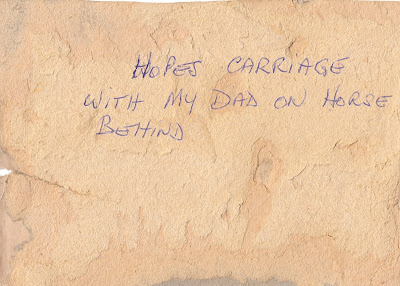 HOPES CARRIAGE
WITH MY DAD ON HORSE
BEHIND